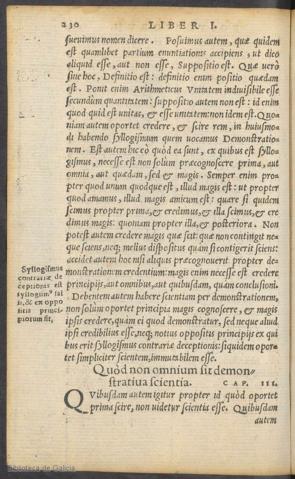 230 LIBER I.
sueuimus nomen dicere. Posuimus autem, quæ quidem
est quamlibet partium enuntiationis accipiens, ut dico
aliquid esse, aut non esse, Suppositio est. Quæ uerò
sine hoc, Definitio est: definitio enim positio quædam
est. Ponit enim Arithmeticus Vnitatem indiuisibile esse
secundùm quantitatem: suppositio autem non est: id enim
quod quid est unitas, & esse unitatem: non idem est. Quo-
niam autem oportet credere, & scire rem, in huiusmo-
di habendo syllogismum quem uocamus Demonstratio-
nem. Est autem hic eò quòd ea sunt, ex quibus est syllo-
gismus, necesse est non solùm præcognoscere prima, aut
omnia, aut quædam, sed & magis. Semper enim pro-
pter quod unum quodque est, illud magis est: ut propter
quod amamus, illud magis amicum est: quare si quidem
scimus propter prima, & credimus, & illa scimus, & cre
dimus magis: quoniam propter illa, & posteriora. Non
potest autem credere magis quæ scit: quæ non contingit ne-
que sciens, neq; melius dispositus quàm si contigerit sciens:
accidet autem hoc nisi aliquis præcognouerit propter de-
monstrationem credentium: magis enim necesse est credere
principijs, aut omnibus, aut quibusdam, quàm conclusioni.
Syllogismus
contrariæ de
ceptionis est
syllogism'
&
ex oppo
sitis princi-
piorum fit.
Debentem autem habere scientiam per demonstrationem,
non solùm oportet principia magis cognoscere, & magis
ipsis credere, quàm ei quod demonstratur, sed neque aliud
ipsi credibilius esse, neq; notius oppositis principijs ex qui
bus erit syllogismus contrariæ deceptionis: siquidem opor-
tet simpliciter scientem, immutabilem esse.
Quòd non omnium sit demon-
stratiua scientia. CAP. III.
QVibusdam autem igitur propter id quòd oportet
prima scire, non uidetur scientia esse. Quibusdam
autem
Biblioteca de Galicia